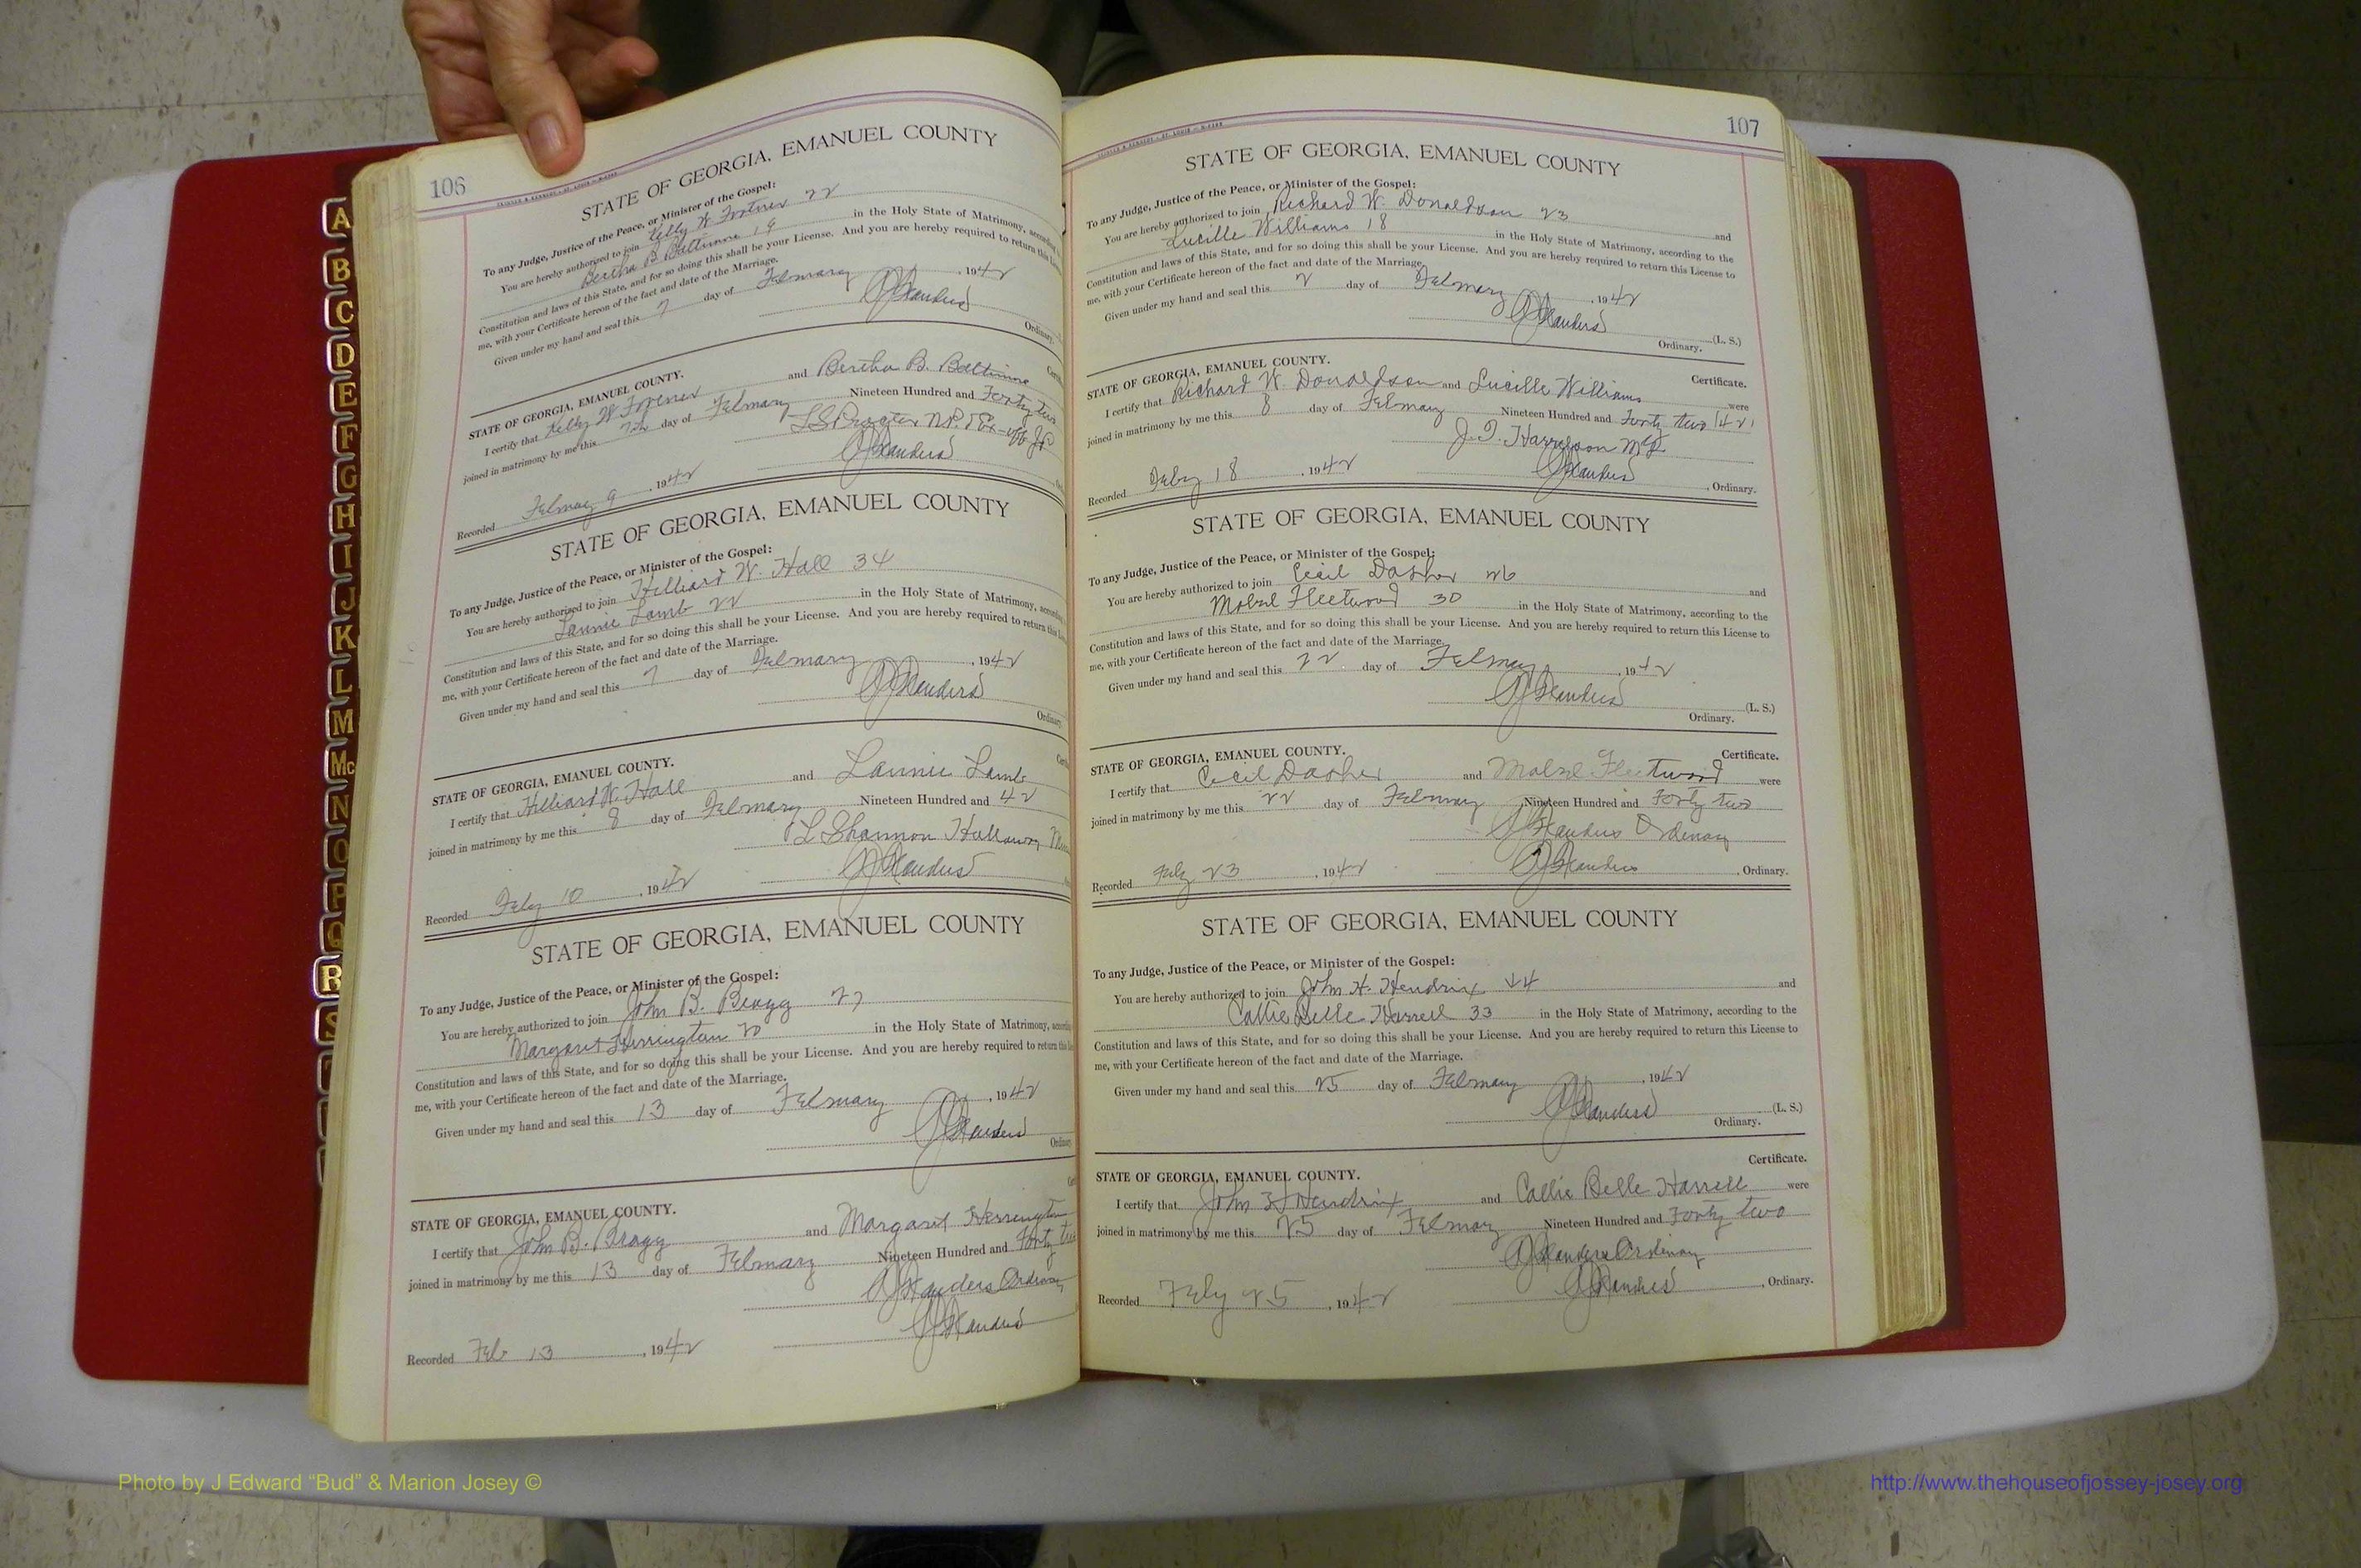 106
STATE OF GEORGIA, EMANUEL COUNTY
To any Judge, Justice of the Peace, or Minister of the Gospel:
You are hereby authorized to join Kelly W Fortner 22
Bertha B Baltimore 19 in the Holy State of Matrimony,
Constitution and laws of this State, and for so doing this shall be your License. And you are hereby required to return this
me, with your Certificate hereon of the fact and date of the Marriage.
Given under my hand and seal this 7 day of February, 1942
Ordinary.
STATE OF GEORGIA, EMANUEL COUNTY.
I certify that Kelly W Fortner and Bertha B. Baltimore
joined in matrimony by me this 7th day of February Nineteen Hundred and Forty two
Recorded February 9, 1942
STATE OF GEORGIA, EMANUEL COUNTY
To any Judge, Justice of the Peace, or Minister of the Gospel:
You are hereby authorized to join Hilliard W. Hall 34
Lannie Lamb 22 in the Holy State of Matrimony,
Constitution and laws of this State, and for so doing this shall be your License. And you are hereby required to return this
me, with your Certificate hereon of the fact and date of the Marriage.
Given under my hand and seal this 7 day of February, 1942
Ordinary
STATE OF GEORGIA, EMANUEL COUNTY.
I certify that Hilliard W. Hall and Lannie Lamb
joined in matrimony by me this 8 day of February Nineteen Hundred and 42
L Shannon Holloway
Recorded Feby 10, 1942
STATE OF GEORGIA, EMANUEL COUNTY
To any Judge, Justice of the Peace, or Minister of the Gospel:
You are hereby authorized to join John B. Bragg 27
Margaret Herrington 20 in the Holy State of Matrimony,
Constitution and laws of this State, and for so doing this shall be your License. And you are hereby required to return
me, with your Certificate hereon of the fact and date of the Marriage.
Given under my hand and seal this 13 day of February, 1942
STATE OF GEORGIA, EMANUEL COUNTY.
I certify that John B. Bragg and Margaret Herrington
joined in matrimony by me this 13 day of February Nineteen Hundred and Forty two
Ordinary
Recorded Feb 13, 1942
107
STATE OF GEORGIA, EMANUEL COUNTY
To any Judge, Justice of the Peace, or Minister of the Gospel:
You are hereby authorized to join Richard W. Donaldson 23 and
Lucille Williams 18 in the Holy State of Matrimony, according to the
Constitution and laws of this State, and for so doing this shall be your License. And you are hereby required to return this License to
me, with your Certificate hereon of the fact and date of the Marriage.
Given under my hand and seal this 2 day of February, 1942
(L. S.)
Ordinary.
STATE OF GEORGIA, EMANUEL COUNTY. Certificate.
I certify that Richard W. Donaldson and Lucille Williams were
joined in matrimony by me this 8 day of February Nineteen Hundred and Forty two (42)
Recorded Feby 18, 1942 , Ordinary.
STATE OF GEORGIA, EMANUEL COUNTY
To any Judge, Justice of the Peace, or Minister of the Gospel:
You are hereby authorized to join Cecil Dasher 26 and
Fleetwood 30 in the Holy State of Matrimony, according to the
Constitution and laws of this State, and for so doing this shall be your License. And you are hereby required to return this License to
me, with your Certificate hereon of the fact and date of the Marriage.
Given under my hand and seal this 22 day of February, 1942
(L. S.)
Ordinary.
STATE OF GEORGIA, EMANUEL COUNTY. Certificate.
I certify that Cecil Dasher and Fleetwood were
joined in matrimony by me this 22 day of February Nineteen Hundred and Forty two
Ordinary
Recorded Feby 23, 1942 , Ordinary.
STATE OF GEORGIA, EMANUEL COUNTY
To any Judge, Justice of the Peace, or Minister of the Gospel:
You are hereby authorized to join John H. Hendrix 44 and
Callie Belle Harrell 33 in the Holy State of Matrimony, according to the
Constitution and laws of this State, and for so doing this shall be your License. And you are hereby required to return this License to
me, with your Certificate hereon of the fact and date of the Marriage.
Given under my hand and seal this 25 day of February, 1942
(L. S.)
Ordinary.
Certificate.
STATE OF GEORGIA, EMANUEL COUNTY.
I certify that John H Hendrix and Callie Belle Harrell were
joined in matrimony by me this 25 day of February Nineteen Hundred and Forty two
Ordinary
Recorded Feby 25, 1942 , Ordinary.
A
B
C
D
E
F
G
H
I
J
K
L
M
Mc
N
O
P
Q
R
S
T
Photo by J Edward “Bud” & Marion Josey ©
http://www.thehouseofjossey-josey.org